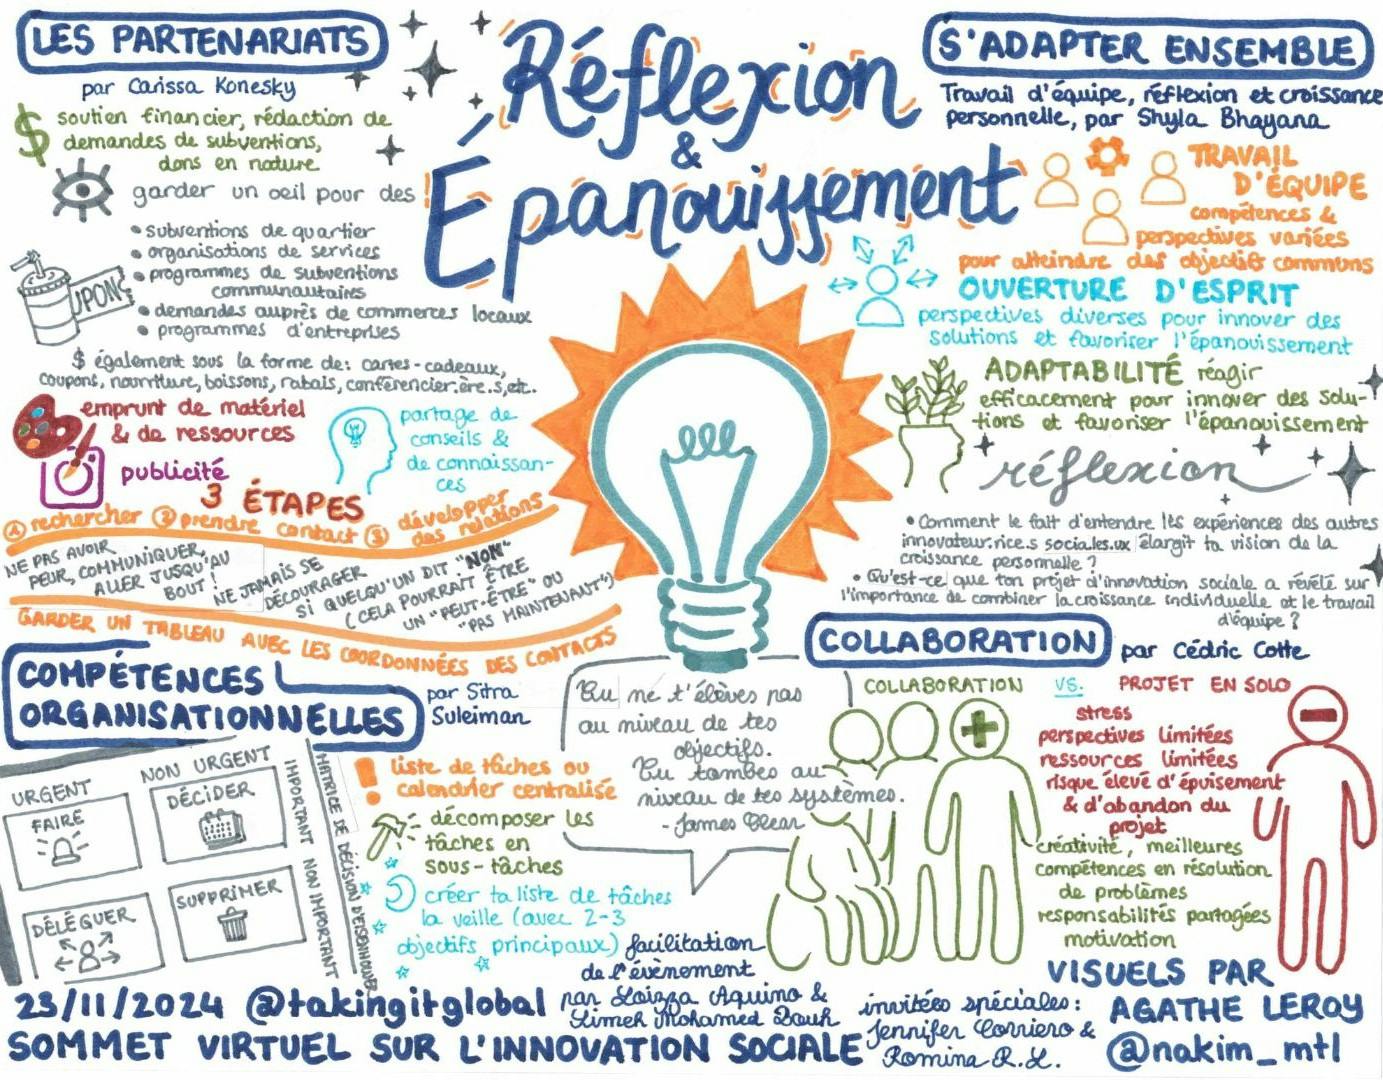 Réflexion
&
Épanouissement
LES PARTENARIATS
par Carissa Konesky
$ soutien financier, rédaction de
demandes de subventions,
dons en nature
garder un oeil pour des
• subventions de quartier
• organisations de services
• programmes de subventions
communautaires
• demandes auprès de commerces locaux
• programmes d'entreprises
UPON
$ également sous la forme de: cartes-cadeaux,
coupons, nourriture, boissons, rabais, conférencier.ère.s, etc.
emprunt de matériel
& de ressources
publicité
partage de
conseils &
de connaissan-
ces
3 ÉTAPES
① rechercher ② prendre contact ③ développer
des relations
NE PAS AVOIR
PEUR, COMMUNIQUER,
ALLER JUSQU'AU
BOUT !
NE JAMAIS SE
DÉCOURAGER
SI QUELQU'UN DIT "NON"
(CELA POURRAIT ÊTRE
UN "PEUT-ÊTRE" OU
"PAS MAINTENANT")
GARDER UN TABLEAU AVEC LES COORDONNÉES DES CONTACTS
S'ADAPTER ENSEMBLE
Travail d'équipe, réflexion et croissance
personnelle, par Shyla Bhayana
TRAVAIL
D'ÉQUIPE
compétences &
perspectives variées
pour atteindre des objectifs communs
OUVERTURE D'ESPRIT
perspectives diverses pour innover des
solutions et favoriser l'épanouissement
ADAPTABILITÉ réagir
efficacement pour innover des solu-
tions et favoriser l'épanouissement
réflexion
• Comment le fait d'entendre les expériences des autres
innovateur.rice.s sociales.ux élargit ta vision de la
croissance personnelle ?
• Qu'est-ce que ton projet d'innovation sociale a révélé sur
l'importance de combiner la croissance individuelle et le travail
d'équipe ?
COMPÉTENCES
ORGANISATIONNELLES
par Sitra
Suleiman
URGENT
NON URGENT
FAIRE
DÉCIDER
DÉLÉGUER
SUPPRIMER
IMPORTANT
NON IMPORTANT
MATRICE DE DÉCISION D'EISENHOWER
! liste de tâches ou
calendrier centralisé
décomposer les
tâches en
sous-tâches
créer ta liste de tâches
la veille (avec 2-3
objectifs principaux)
Tu ne t'élèves pas
au niveau de tes
objectifs.
Tu tombes au
niveau de tes systèmes.
- James Clear
COLLABORATION
par Cédric Cotte
COLLABORATION VS. PROJET EN SOLO
stress
perspectives limitées
ressources limitées
risque élevé d'épuisement
& d'abandon du
projet
créativité, meilleures
compétences en résolution
de problèmes
responsabilités partagées
motivation
facilitation
de l'évènement
par Loizza Aquino &
Limeh Mohamed Douh
invitées spéciales:
Jennifer Corriero &
Romina R.H.
VISUELS PAR
AGATHE LEROY
@nakim_mtl
23/11/2024 @takingitglobal
SOMMET VIRTUEL SUR L'INNOVATION SOCIALE